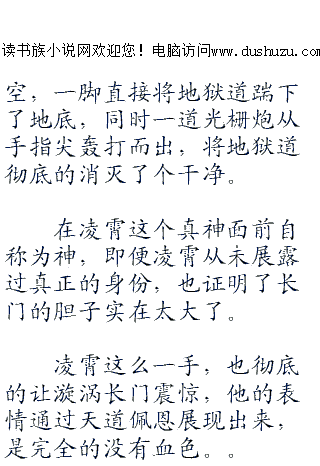 读书族小说网欢迎您！电脑访问www.dushuzu.com
空，一脚直接将地狱道踹下
了地底，同时一道光栅炮从
手指尖轰打而出，将地狱道
彻底的消灭了个干净。
在凌霄这个真神面前自
称为神，即便凌霄从未展露
过真正的身份，也证明了长
门的胆子实在太大了。
凌霄这么一手，也彻底
的让漩涡长门震惊，他的表
情通过天道佩恩展现出来，
是完全的没有血色。。